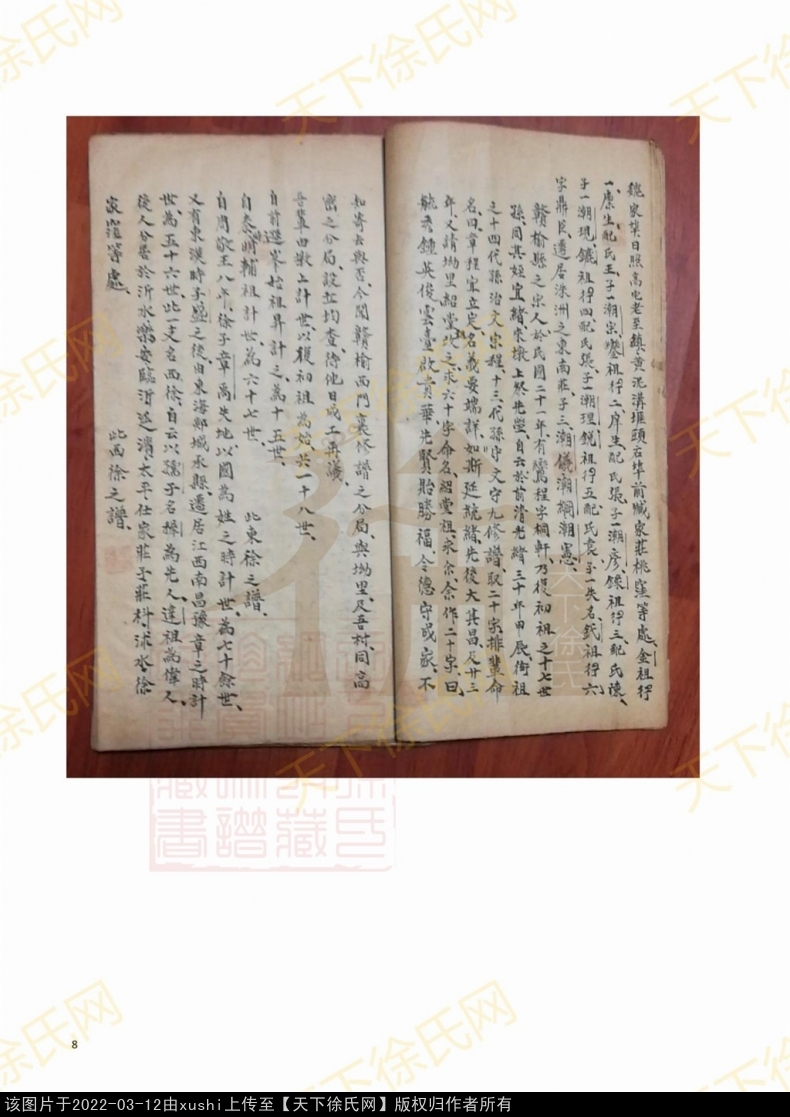 魏家集日照高宅老至鎮黄泥溝堰頭右埠前臧家莊桃窪等處金祖行
一庠生配氏王子一潮宗鑾祖行二庠生配氏張子一潮彦錸祖行三配氏陳
子一潮現鑣祖行四配氏張子一潮理鋭祖行五配氏袁子一失名鈬祖行六
字鼎臣遷居洙洲之東南莊子三潮儀潮綱潮憲
贛榆縣之宗人於民國二十一年有鸞程字桐軒乃復初祖之十七世
孫同其姪宜緒來墩上祭先塋自云於前清光緒三十年甲辰街祖
之十四代孫治文宗程十三代孫守文守九修譜取二十字排輩命
名曰章程家立定名義要端詳如斯延統緒先後大其昌及廿三
年又請坳里紹堂求六十字命名紹堂祖求余余作二十字曰
毓秀鍾英俊雲臺啟貴華先賢貽勝福令德守成家不
如寄去與否今聞贛榆西門裏修譜之分局與坳里及吾村同高
密之分局設立均查待他日成工再議
吾輩由墩上計世以復初祖為始共一十八世
自前遷峯始祖昇計之為十五世
自泰明輔祖計世為六十七世
此東徐之譜
自周敬王八年徐子章禹失地以國為姓之時計世為七十餘世
又有東漢時子盛之後由東海郯城承縣遷居江西南昌豫章之時計
世為五十六世此一支名西徐自云以孺子名穉為先人逵祖為偉人
後人分居於沂水樂安臨沂莒濱太平仕家莊子莊科沭水徐
家窪等處
此西徐之譜
8
该图片于2022-03-12由xushi上传至【天下徐氏网】版权归作者所有
天下徐氏网